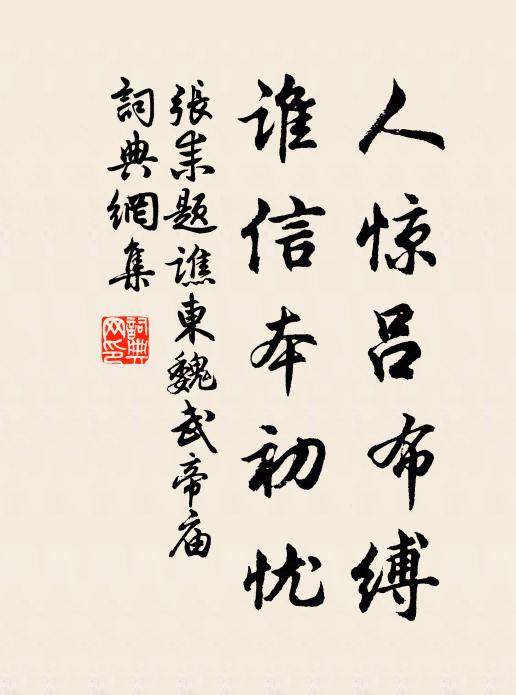 人惊吕布缚
谁信本初忧
張耒题譙東魏武帝庙
詞典網集
詞典
网印